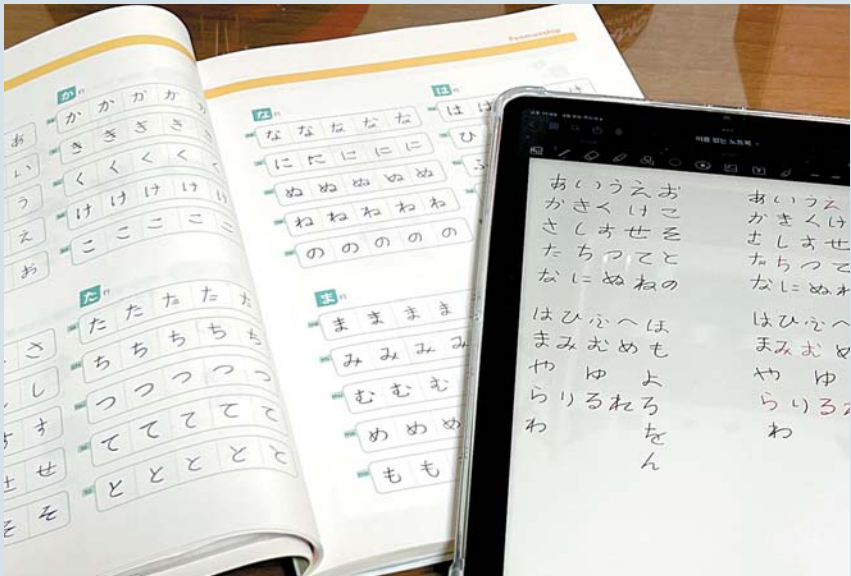 あ
い
う
え
お
さ
し
す す
せ せ
そ そ
か 行
か か か か か
き き き き き
く く く く く
け け け け け
こ こ こ こ こ
た 行
た た た た た
ち ち ち ち ち
つ つ つ つ つ
て て て て て
と と と と と
Penmanship
な 行
な な な な な
に に に に に
ぬ ぬ ぬ ぬ ぬ
ね ね ね ね ね
の の の の の
は 行
は は け
ひ
ふ
ま 行
ま ま ま ま
み み み み
む む む
め め め
も も
이름 없는 노트북
あ い う え お
か き く け こ
さ し す せ そ
た ち つ て と
な に ぬ ね の
は ひ ふ へ ほ
ま み む め も
や ゆ よ
ら り る れ ろ
わ を
ん
あ い う え
か き く け
さ し す せ
た ち つ て
な に ぬ ね
は ひ ふ へ
ま み む め
や ゆ
ら り る れ
わ